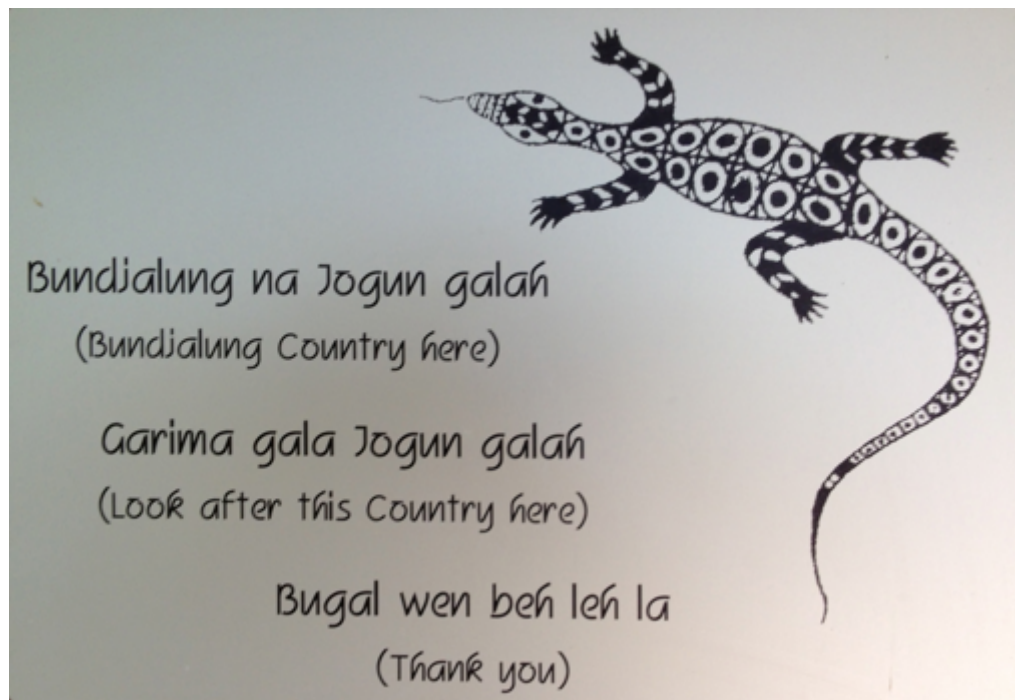 Bundjalung na Jogun galah
(Bundjalung Country here)
Garima gala Jogun galah
(Look after this Country here)
Bugal wen beh leh la
(Thank you)